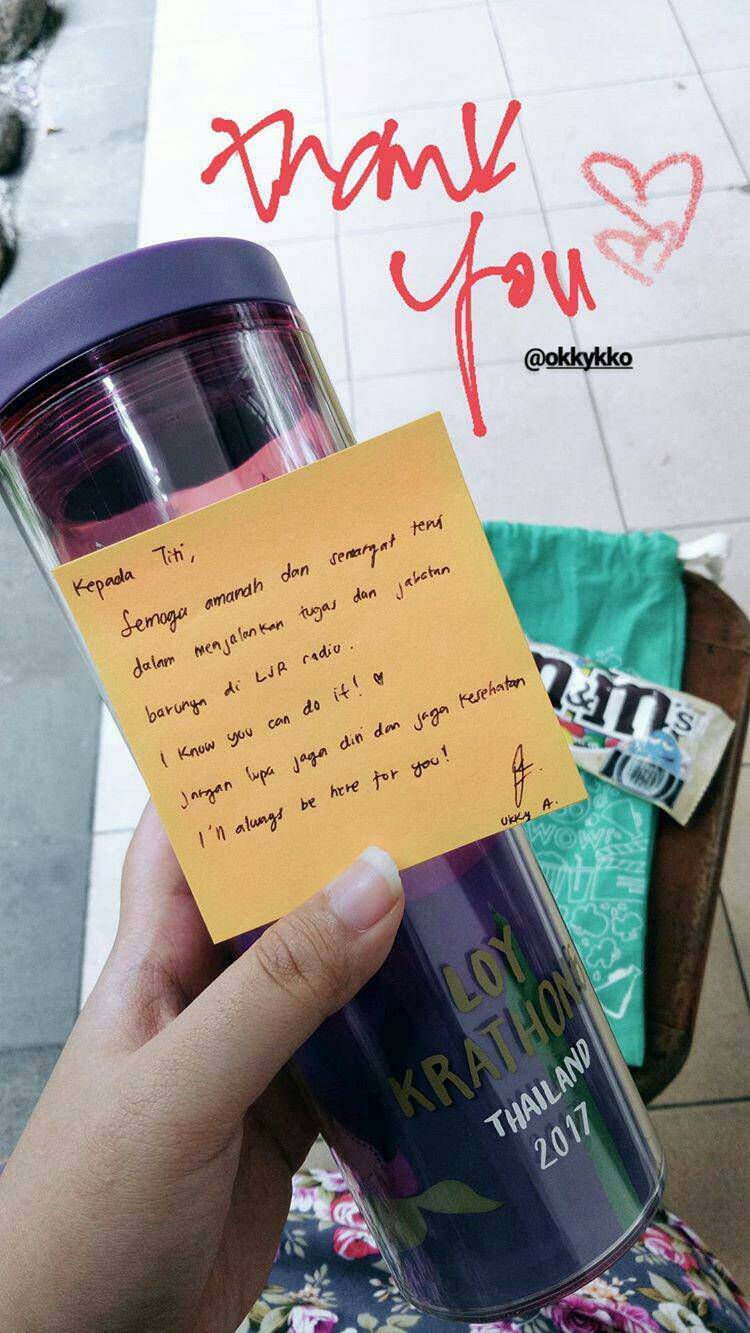 Thank
you
@okkykko
Kepada Titi,
Semoga amanah dan semangat terus
dalam menjalankan tugas dan jabatan
barunya di radio.
I know you can do it! ♥
Jangan lupa jaga diri dan jaga kesehatan
I'll always be here for you!
Okky A.
m&m's
WOW
LOY
KRATHONG
THAILAND
2017